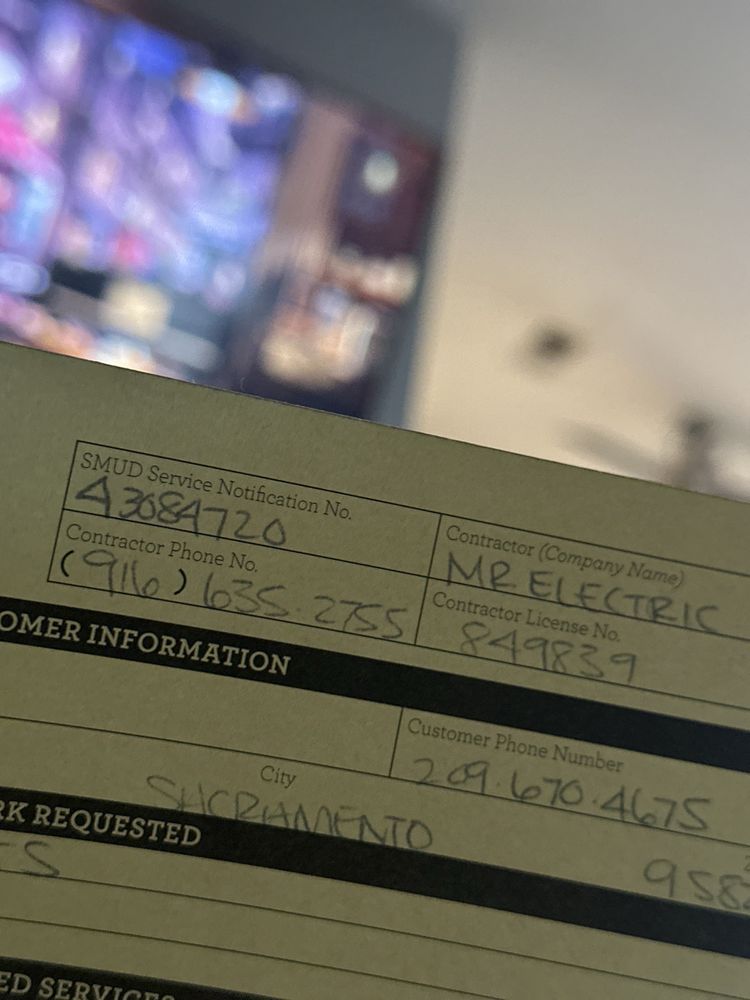 SMUD Service Notification No.
43084720
Contractor (Company Name)
MR ELECTRIC
Contractor Phone No.
(916) 635.2755
Contractor License No.
849839
OMER INFORMATION
Customer Phone Number
209.670.4675
City
SACRAMENTO
958
RK REQUESTED
ES
ED SERVICES